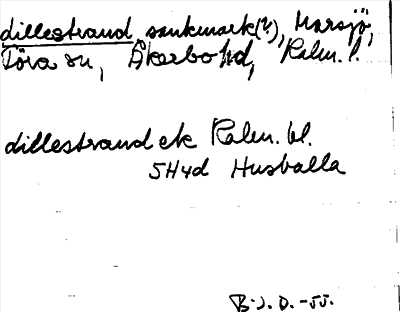 dillestrand, sankmark(?), Marsjö,
Töra sn, Åkerbo hd, Kalm. l.
dillestrand ek Kalm. bl.
5H4d Husvalla
B. J. D. -55.